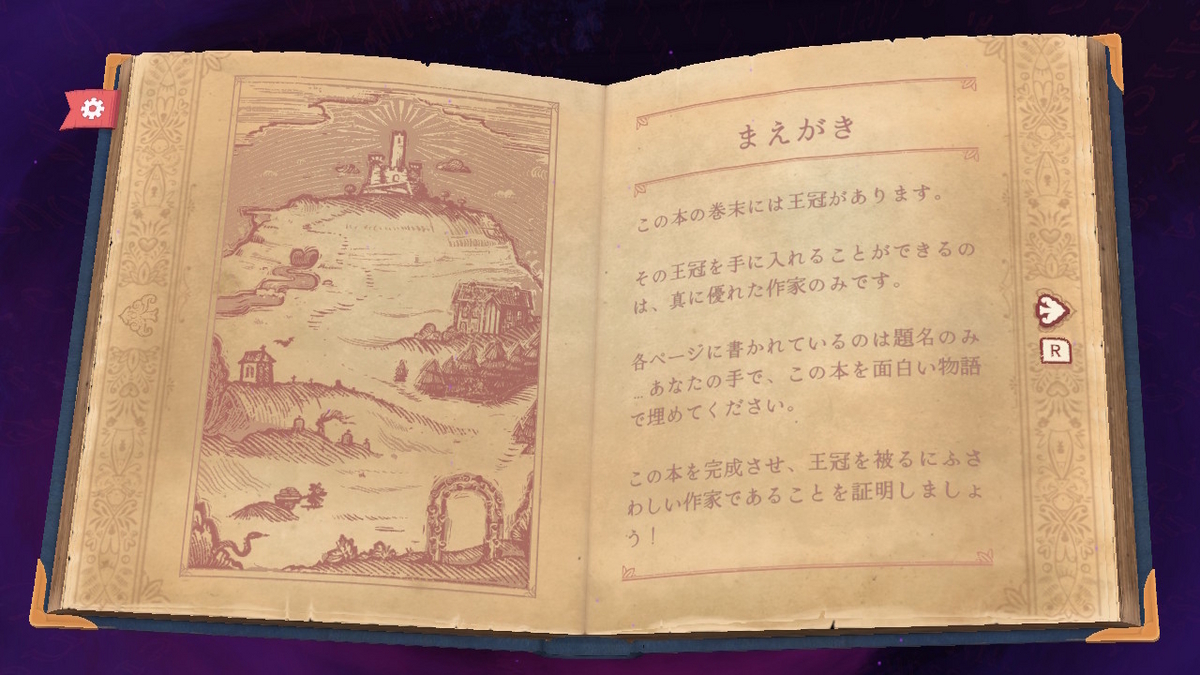 まえがき
この本の巻末には王冠があります。
その王冠を手に入れることができるの
は、真に優れた作家のみです。
各ページに書かれているのは題名のみ
…あなたの手で、この本を面白い物語
で埋めてください。
この本を完成させ、王冠を被るにふさ
わしい作家であることを証明しましょ
う！
R